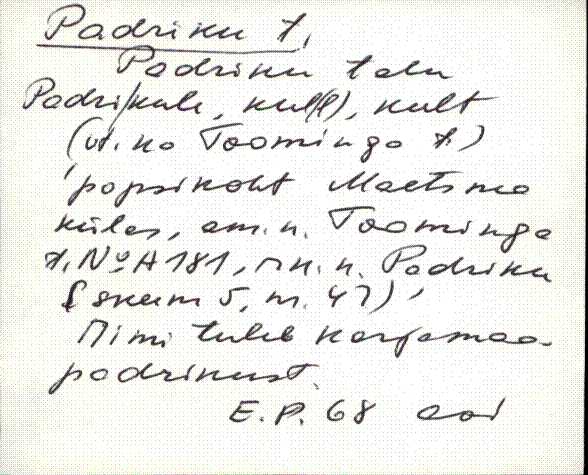 Padriku t.
Padriku talu
Padri/kule, kul(l), kult
(vt. ka Toominga t.)
'popsikoht Maetsma
külas, am. n. Toominga
t. № A 181, rhk. n. Padriku
(skeem 5, nr. 47)'
Nimi tuleb karjamaa-
padrikust.
E.P. 68